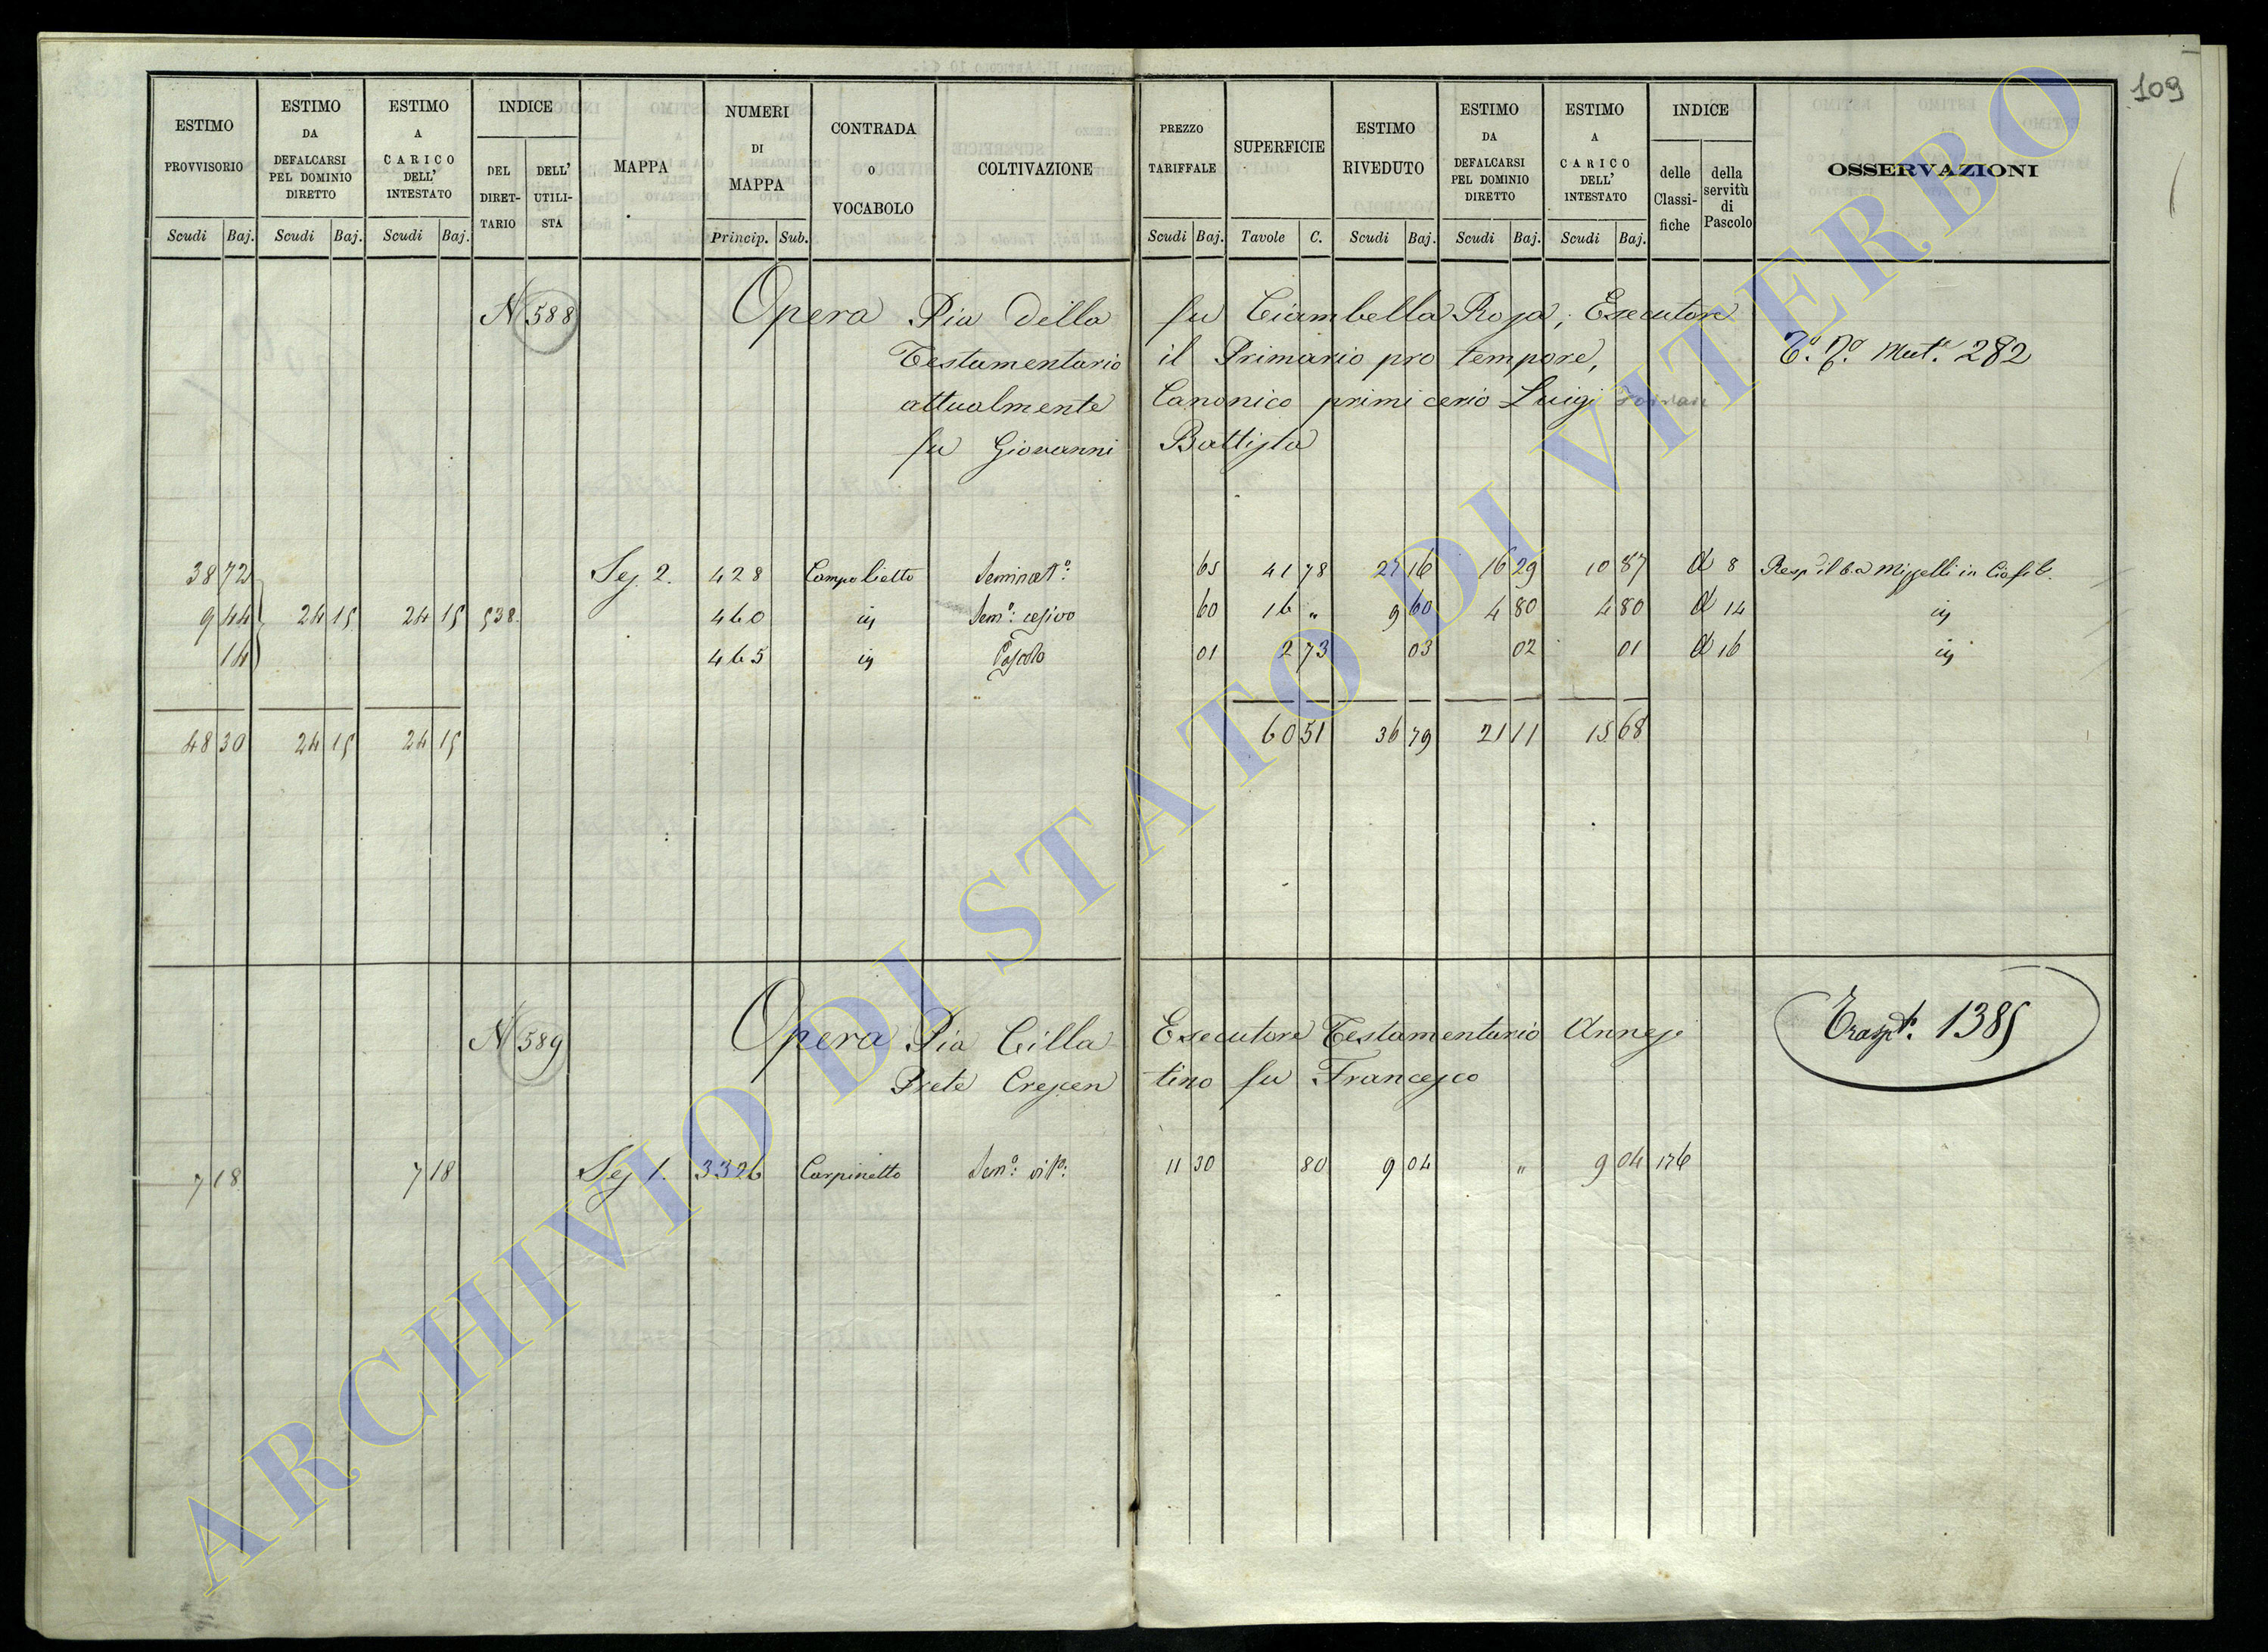 109
ESTIMO PROVVISORIO
ESTIMO DA DEFALCARSI PEL DOMINIO DIRETTO
ESTIMO A CARICO DELL' INTESTATO
INDICE
DEL DIRET-TARIO
DELL' UTILI-STA
MAPPA
NUMERI DI MAPPA
CONTRADA O VOCABOLO
COLTIVAZIONE
PREZZO TARIFFALE
SUPERFICIE
ESTIMO RIVEDUTO
ESTIMO DA DEFALCARSI PEL DOMINIO DIRETTO
ESTIMO A CARICO DELL' INTESTATO
INDICE
delle Classi-fiche
della servitù di Pascolo
OSSERVAZIONI
Scudi Baj. Scudi Baj. Scudi Baj. Princip. Sub. Scudi Baj. Tavole C. Scudi Baj. Scudi Baj. Scudi Baj.
N 588 Opera Pia della fu Ciambella Rosa, Esecutore
Testamentario il Primario pro tempore, Mut. 282
attualmente Canonico primicerio Luigi
fu Giovanni Battista
38 72 Sez. 2. 428 Campolietto Seminato: 65 41 78 27 16 16 29 10 87 8
9 44 24 15 24 15 538. 460 in Sem.o: cesivo 60 16 " 9 60 4 80 4 80 14 in
14 465 in Pascolo 01 2 73 03 02 01 16 in
48 30 24 15 24 15 60 51 36 79 21 11 15 68
N 589 Opera Pia Cilla Esecutore Testamentario Annesi Trasp.to 1385
Prete Crescentino fu Francesco
7 18 7 18 Sez 1. 3326 Carpinetto Sem.o: vit.o: 11 30 80 9 04 " 9 04 176
ARCHIVIO DI STATO DI VITERBO